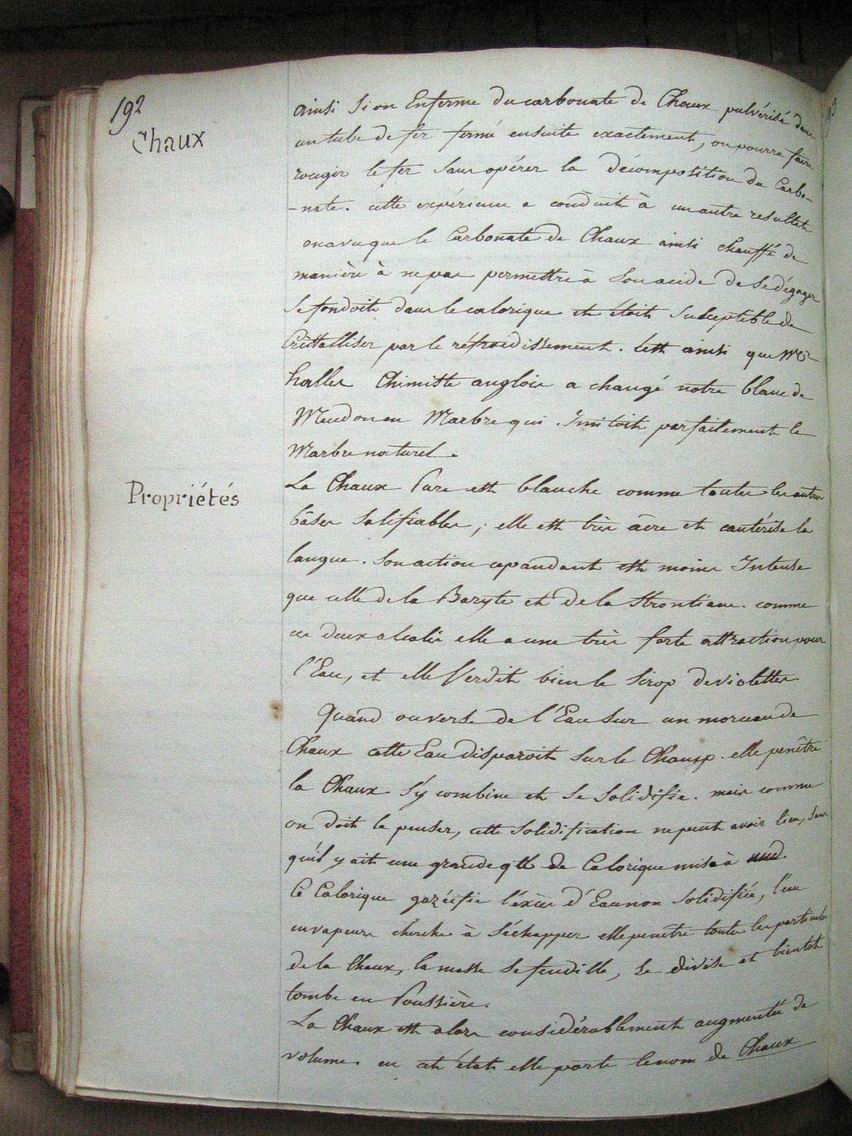 192
Chaux
ainsi si on Enferme du carbonate de Chaux pulvérisé dans
un tube de fer fermé ensuite exactement, on pourra faire
rougir le fer sans opérer la décomposition du Carbo-
-nate. cette expérience a conduit à un autre resultat
on a vu que le Carbonate de Chaux ainsi chauffé de
manière à ne pas permettre à son acide de se dégager
se fondoit dans le calorique et étoit susceptible de
Cristalliser par le refroidissement. C'est ainsi que Mr
haller Chimiste anglois a changé notre blanc de
Meudon en Marbre qui Imitoit parfaitement le
Marbre naturel.
Propriétés
La Chaux Pure est blanche comme toutes les autres
bâses salifiables; elle est très âcre et cautérise la
langue. Son action cependant est moins Intense
que celle de la Baryte et de la Strontiane. comme
ces deux alcalis elle a une très forte attraction pour
l'Eau, et elle Verdit bien le Sirop de violettes
Quand on verse de l'Eau sur un morceau de
Chaux cette Eau disparoit sur le Chaux. elle penêtre
la Chaux s'y combine et se solidifie. mais comme
on doit le penser, cette solidification ne peut avoir lieu, sans
qu'il y ait une grande qté de Calorique mise à nud.
Ce Calorique gazéifie l'éxcès d'Eau non solidifiée, l'eau
en vapeurs cherche à s'échapper elle penêtre toutes les particules
de la Chaux, la masse se fendille, se divise et bientot
tombe en Poussière.
La Chaux est alors considérablement augmentée de
volume. en cet état elle porte le nom de Chaux